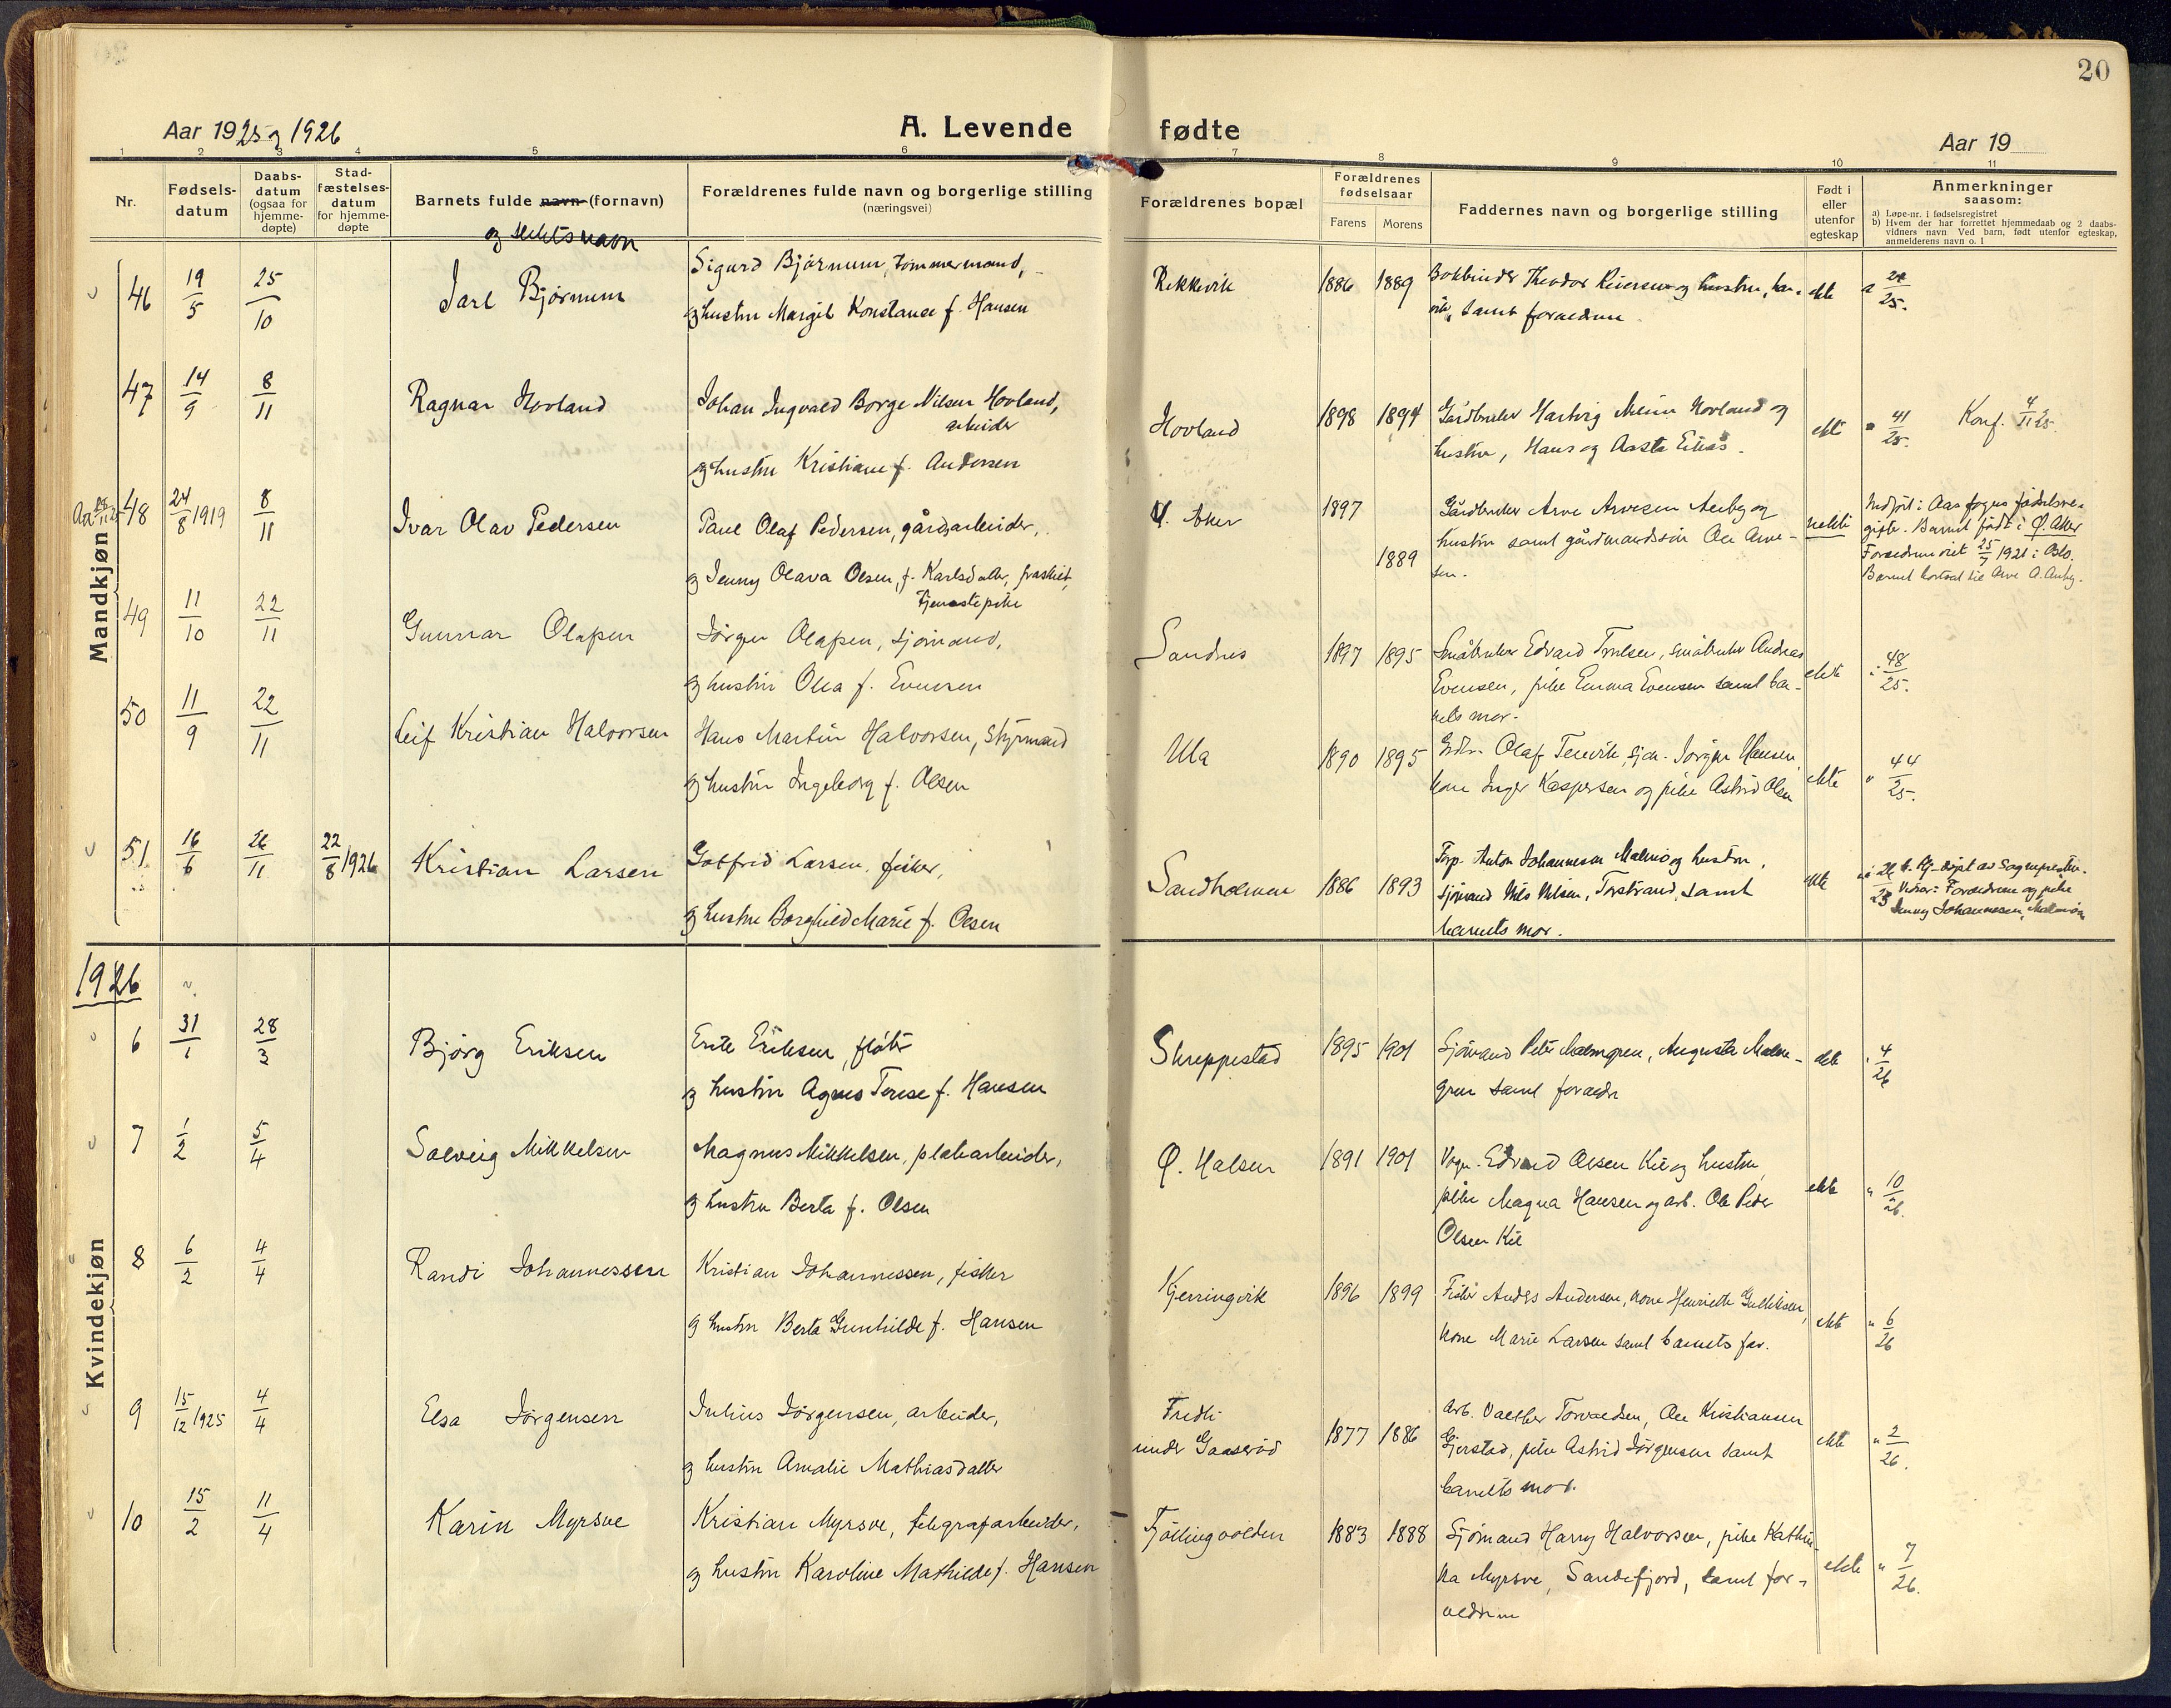 20
Aar 1925 og 1926
A. Levende fødte
Aar 19
1 2 3 4 5 6 7 8 9 10 11
Nr.
Fødsels-
datum
Daabs-
datum
(ogsaa for
hjemme-
døpte)
Stad-
fæstelses-
datum
for hjemme-
døpte
Barnets fulde navn (fornavn)
og slektsnavn
Forældrenes fulde navn og borgerlige stilling
(næringsvei)
Forældrenes bopæl
Forældrenes
fødselsaar
Farens Morens
Faddernes navn og borgerlige stilling
Født i
eller
utenfor
egteskap
Anmerkninger
saasom:
a) Løpe-nr. i fødselsregistret
b) Hvem der har forrettet hjemmedaab og 2 daabs-
vidners navn Ved barn, født utenfor egteskap,
anmelderens navn o. l
Mandkjøn
46 19/5 25/10 Jarl Bjørnum
Sigurd Bjørnum, tømmermand,
og hustru Margit Konstance f. Hansen
Rekkevik 1886 1889
Bokbinder Theodor Iversen og hustru, Lar-
vik, samt forældrene
ekte a 24/25.
47 14/9 8/11 Ragnar Hovland
Johan Ingvald Borge Nilsen Hovland,
arbeider
og hustru Kristiane f. Andersen
Hovland 1898 1894
Gårdbruker Hartvig Hovland og
hustru, Hans og Aasta
ekte " 41/25. Konf. 4/11 25.
48 24/8 1919 8/11 Ivar Olav Pedersen
Paul Olaf Pedersen, gårdsarbeider,
og Jenny Olava Olsen, f. Karlsdatter, fraskilt,
tjenestepike
Ø. Aker 1897 1889
Gårdbruker Arve Arvesen Auby og
hustru samt gårdmandssøn Ole Arve-
sen.
uekte
Indført i Aas sogns fødselsre-
gister. Barnet født i Ø. Aker
Forældrene viet 25/7 1921 i Oslo.
Barnet bortsat til Arve A. Auby.
49 11/10 22/11 Gunnar Olafsen
Jørgen Olafsen, sjømand,
og hustru Olea f. Evensen
Sandnes 1897 1895
Småbruker Edvard Trulsen, småbruker Andreas
Evensen, pike Emma Evensen samt bar-
nets mor.
ekte " 48/25.
50 11/9 22/11 Leif Kristian Halvorsen
Hans Martin Halvorsen, styrmand
og hustru Ingeborg f. Olsen
Ula 1890 1895
Grdbr. Olaf Tenvik, sjøm. Jørgen Hansen,
kone Inger Kaspersen og pike Astrid Olsen
ekte " 44/25.
51 16/6 26/11 22/8 1926 Kristian Larsen
Gotfred Larsen, fisker,
og hustru Borghild Marie f. Olsen
Sandholmen 1886 1893
Forp. Anton Johannesen Malmø og hustru,
sjømand Nils Nilsen, Torstrand, samt
barnets mor.
ekte
b. Hj. døpt av Sognepresten.
Vidner: Forældrene og pike
Jenny Johannesen, Malmøen
1926
Kvindekjøn
6 31/1 28/3 Bjørg Eriksen
Erik Eriksen, fløter
og hustru Agnes Terese f. Hansen
Skreppestad 1895 1901
Sjømand Peter Malmgren, Augusta Malm-
gren samt forældre
ekte " 4/26
7 1/2 5/4 Solveig Mikkelsen
Magnus Mikkelsen, platearbeider,
og hustru Berta f. Olsen
Ø. Halsen 1891 1901
Vogn. Edvard Olsen Kil og hustru,
pike Magna Hansen og arb. Ole Peder
Olsen Kil
ekte " 10/26.
8 6/2 4/4 Randi Johannessen
Kristian Johannessen, fisker
og hustru Berta Gunhilde f. Hansen
Kjerringvik 1896 1899
Fisker Anders Andersen, kone Henriette Gulliksen,
kone Marie Larsen samt barnets far.
ekte " 6/26
9 15/12 1925 4/4 Elsa Jørgensen
Julius Jørgensen, arbeider,
og hustru Amalie Mathiasdatter
Fredli
under Gaaserød 1877 1886
Arb. Valther Torvaldsen, Ole Kristiansen
Gjerstad, pike Astrid Jørgensen samt
barnets mor.
ekte " 2/26.
10 15/2 11/4 Karin Myrsve
Kristian Myrsve, telegrafarbeider,
og hustru Karoline Mathilde f. Hansen
Tjøllingvolden 1883 1888
Sjømand Harry Halvorsen, pike Kathin-
ka Myrsve, Sandefjord, samt for-
ældrene
ekte " 7/26.